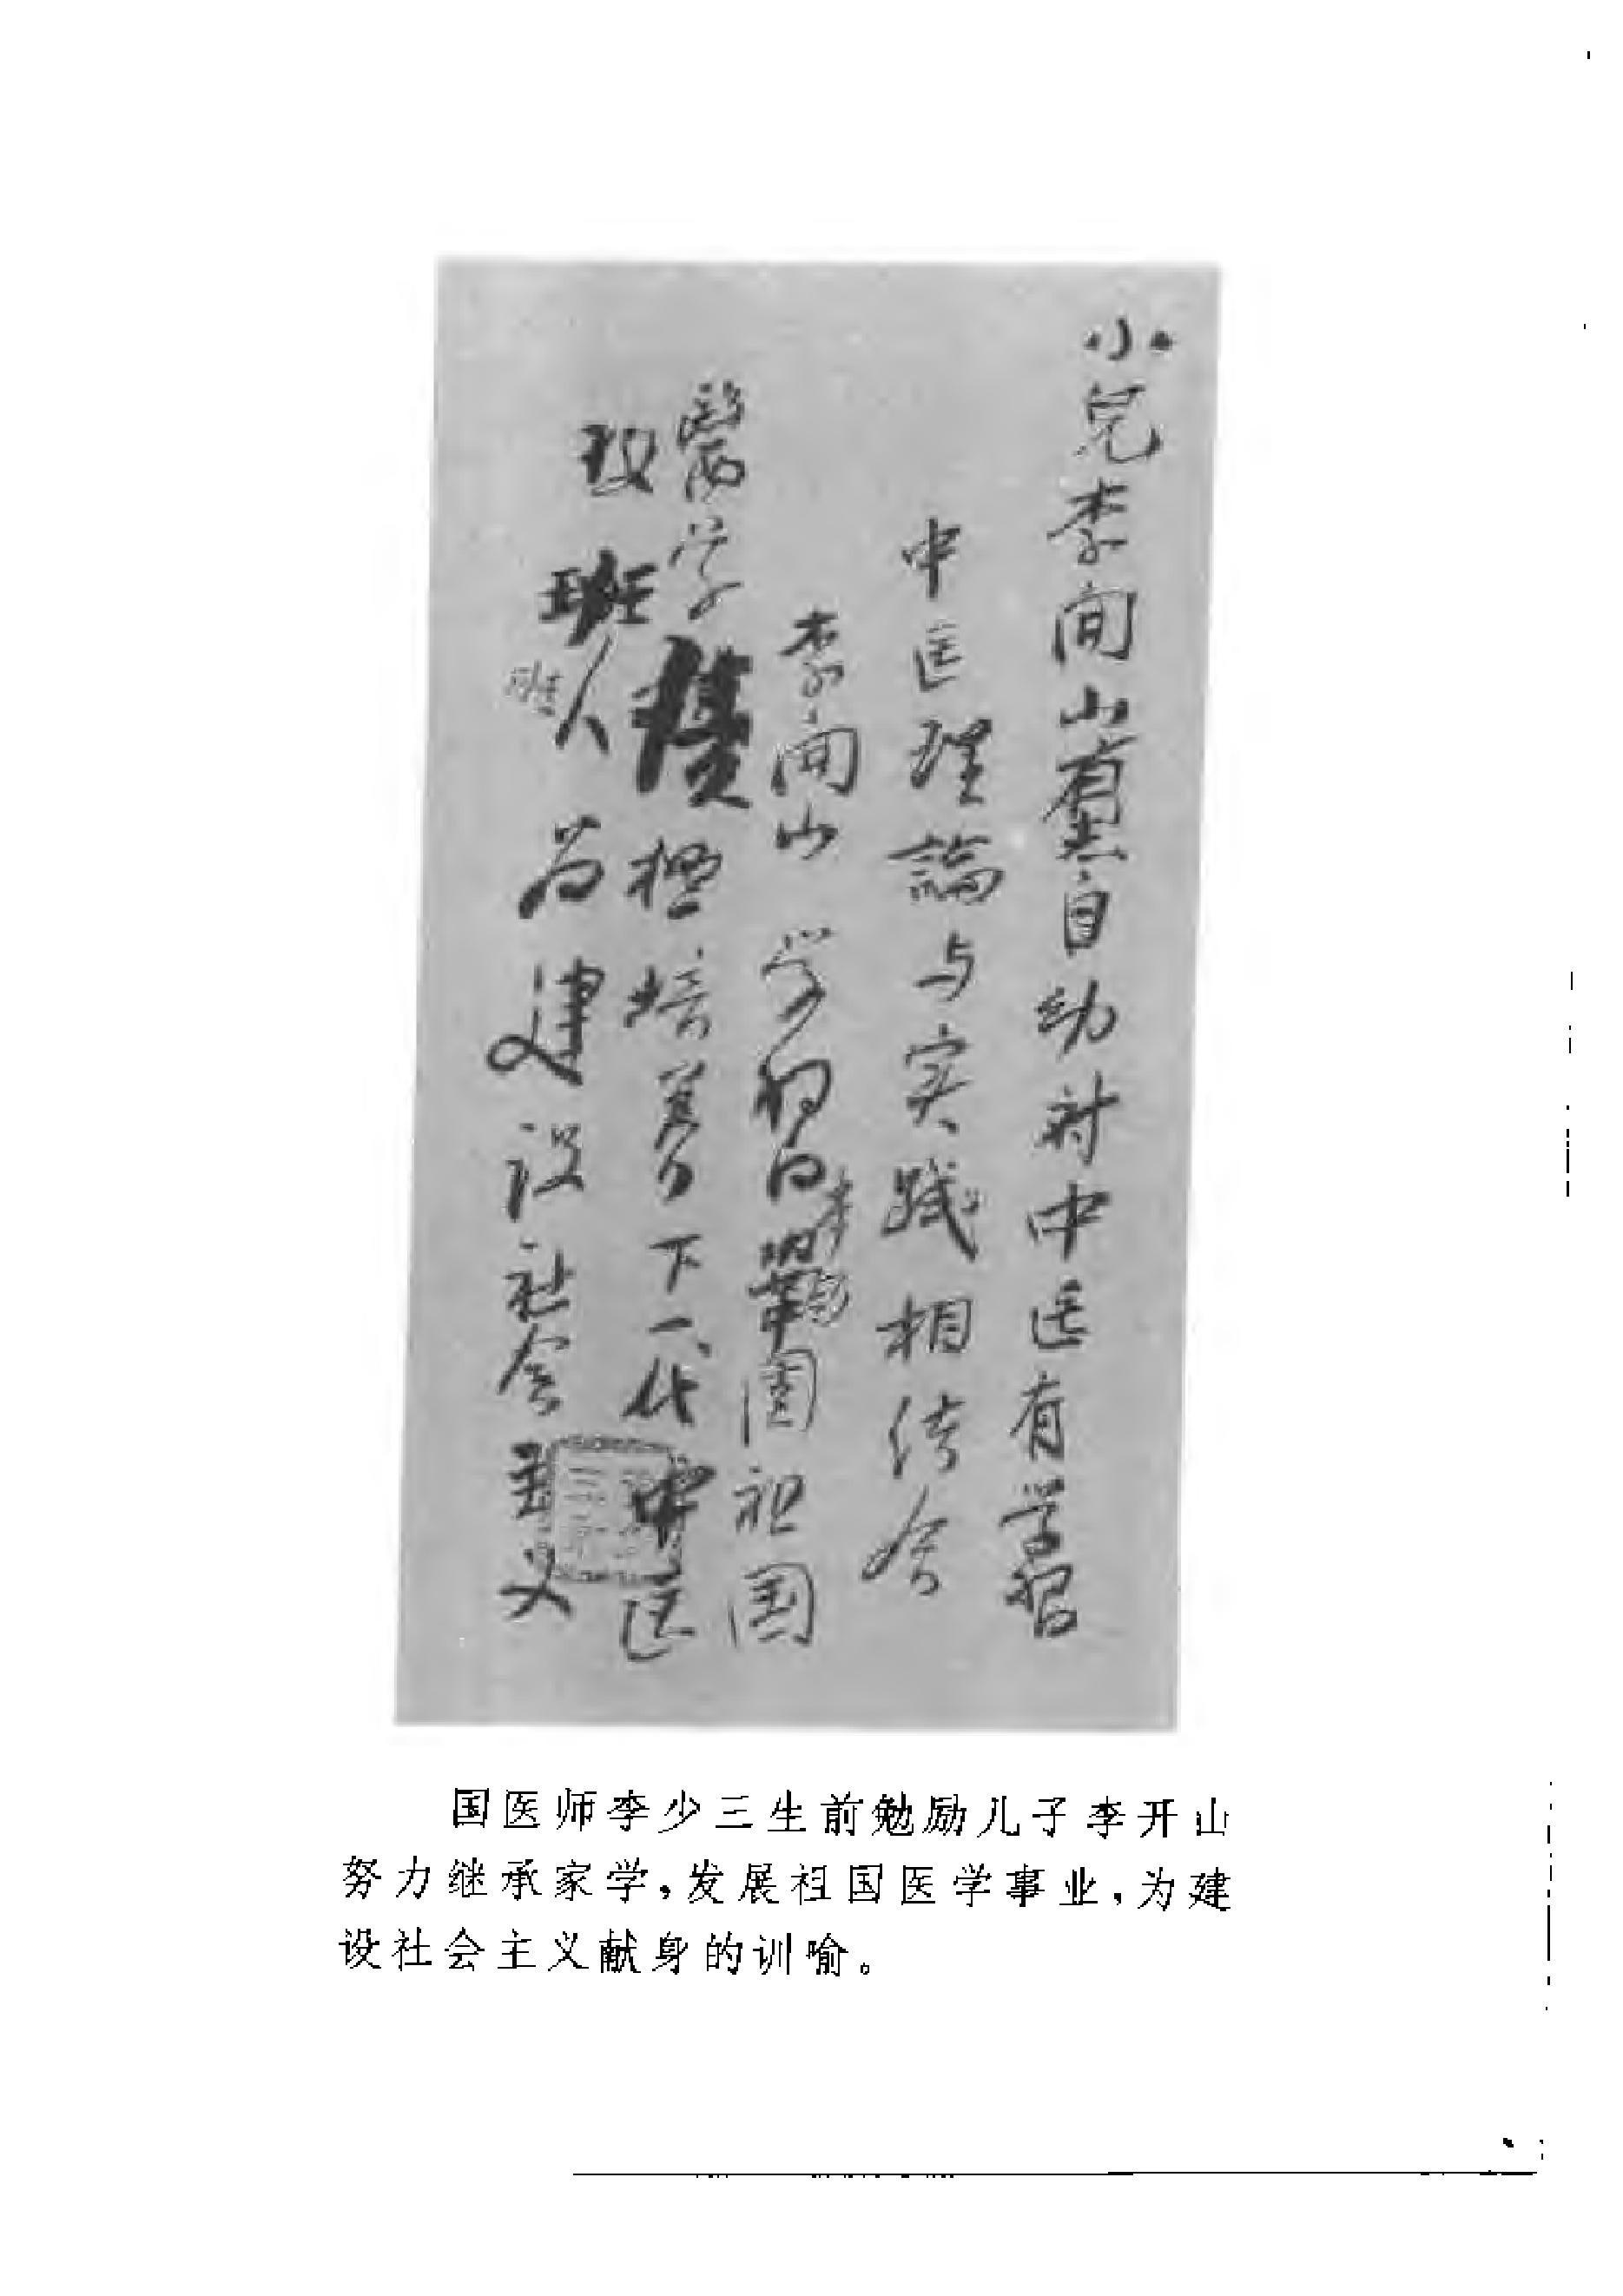 小兒李開山有志自幼对中医有学習
中医理論与实践相结合
李開山学習巩固祖国
醫学積極培养下一代中医
班人为建设社会主义
国医师李少三生前勉励儿子李开山
努力继承家学，发展祖国医学事业，为建
设社会主义献身的训喻。